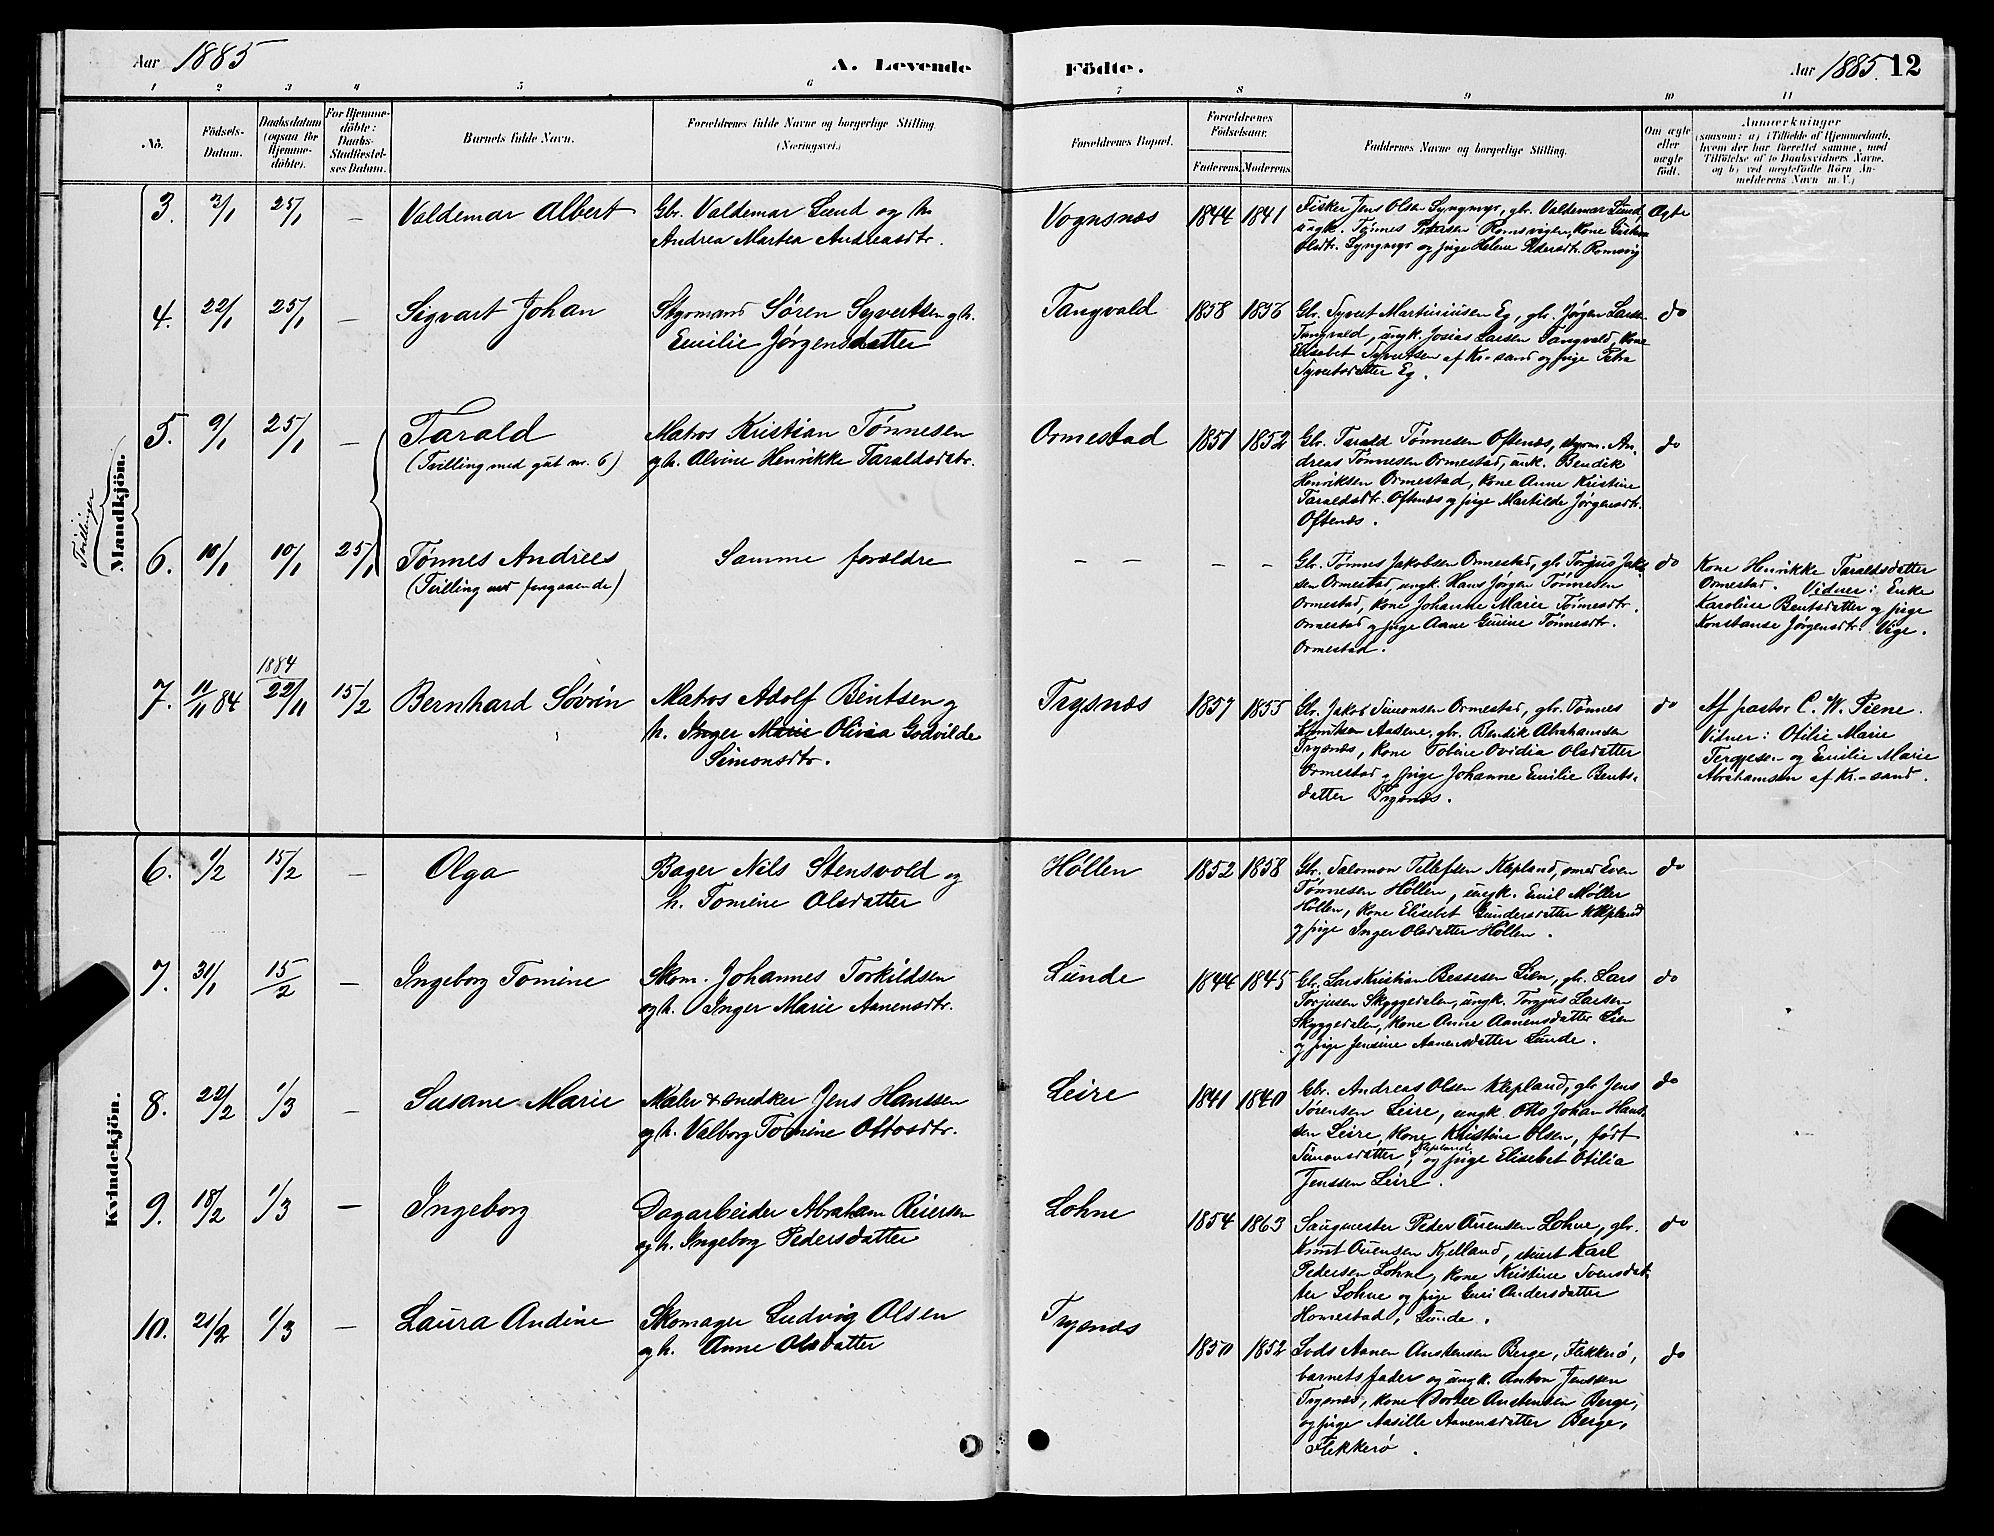 Aar 1885 A. Levende Födte. Aar 1885. 12
1 2 3 4 5 6 7 8 9 10 11
No.
Födsels-
Datum.
Daabsdatum
(ogsaa for
Hjemme-
döbte).
For Hjemme-
döbte:
Daabs-
Stadfæstel-
ses Datum.
Barnets fulde Navn.
Forældrenes fulde Navne og borgerlige Stilling
(Næringsvei.)
Forældrenes Bopæl.
Forældrenes
Födselsaar.
Faderens. Moderens.
Faddernes Navne og borgerlige Stilling.
Om ægte
eller
uægte
födt.
Anmærkninger
(saasom: a) i Tilfælde af Hjemmedaab,
hvem der har forrettet samme, med
Tilföielse af to Daabsvidners Navne,
og b) ved uægtefödte Börn An-
melderens Navn m. V.)
Tvillinger
Mandkjön.
3. 3/1 25/1 — Valdemar Albert
Gbr. Valdemar Lund og h.
Andrea Martea Andreasdtr.
Vognsnæs 1844 1841
Fisker Jens Olsen Syngmyr, gbr. Valdemar Lund,
ungk. Tönnes Petersen Romsvigen, kone
Olsdtr. Syngmyr og pige Helene Romsvig
Ægte
4. 22/1 25/1 — Sigvart Johan
Styrmand Sören Syvertsen og h.
Emilie Jörgensdatter
Tangvald 1858 1856
Gbr. Syvert Martiniusen Eg, gbr. Jørgen Larsen
Tangvald, ungk. Josias Larsen Tangvald, kone
Elisabet Syvertsen af Kr.sand og pige Petra
Syvertsdatter Eg.
do
5. 9/1 25/1 — Tarald
(Tvilling med gut nr. 6)
Matros Kristian Tønnesen
og h. Olvine Henrikke Taraldsdatr.
Ormestad 1851 1852
Gbr. Tarald Tønnesen Oftenæs, styrm. An-
dreas Tønnesen Ormestad, unk. Bendik
Henriksen Ormestad, kone Anne Kristine
Taraldsdtr. Oftenæs og pige Martilde Jørgensdtr.
Oftenæs.
do
6. 10/1 10/1 25/1 Tønnes Andreas
(Tvilling med foregaaende)
Samme forældre
— — — —
Gbr. Tønnes Jakobsen Ormestad, gbr. Torjus Jakob-
sen Ormestad, ungk. Hans Jørgen Tönnesen
Ormestad, kone Johanne Marie Tönnesdtr.
Ormestad og pige Anne Gurine Tönnesdtr.
Ormestad.
do
Kone Henrikke Taraldsdatter
Ormestad. Vidner: Enke
Karoline Bentsdatter og pige
Konstanse Jørgensdtr. Vige.
7. 11/11 84 1884 22/11 15/2 Bernhard Søvrin
Matros Adolf Bentsen og
h. Inger Marie Olivia Godvilde
Simonsdtr.
Trysnæs 1857 1855
Gbr. Jakob Simonsen Ormestad, gbr. Tønnes
Henriksen Aasene, gbr. Bendik Abrahamsen
Trysnæs, kone Tobine Ovidia Olsdatter
Ormestad og pige Johanne Emilie Bents-
datter Trysnæs.
do
Af pastor C. W. Piene.
Vidner: Otilie Marie
Tergesen og Emilie Marie
Abrahamsen af Kr.-sand.
Kvindekjön.
6. 1/2 15/2 — Olga
Bager Nils Stensvold og
h. Tomine Olsdatter
Höllen 1852 1858
Gbr. Salomon Tellefsen Klepland, smed Even
Tönnesen Höllen, ungk. Emil Møller
Höllen, kone Elisebet Gundersdatter Klepland
og pige Inger Olsdatter Höllen.
do
7. 31/1 15/2 — Ingeborg Tomine
Skom. Johannes Torkildsen
og h. Inger Marie Aanensdtr.
Lunde 1844 1845
Gbr. Lars Kristian Bertesen Lien, gbr. Lars
Torjusen Skyggedalen, ungk. Torjus Larsen
Skyggedalen, kone Anne Aanensdatter Lien
og pige Jensine Aanensdatter Lunde.
do
8. 22/2 1/3 — Susane Marie
Maler & snedker Jens Hanssen
og h. Valborg Tomine Ottosdtr.
Leire 1841 1840
Gbr. Andreas Olsen Klepland, gbr. Jens
Sørensen Leire, ungk. Otto Johan Hans-
sen Leire, kone Kristine Olsen, født
Simonsdatter, Klepland, og pige Elisebet Otilia
Jenssen Leire.
do
9. 18/2 1/3 — Ingeborg
Dagarbeider Abraham Reiersen
og h. Ingeborg Pedersdatter
Lohne 1854 1863
Saugmester Peder Ouensen Lohne, gbr.
Knut Ouensen Kjelland, Karl
Pedersen Lohne, kone Kristine Svensdat-
ter Lohne og pige Guri Andersdatter
Homestad, Lunde.
do
10. 21/2 1/3 — Laura Andine
Skomager Ludvig Olsen
og h. Anne Olsdatter
Trysnæs 1850 1852
Lods Aanen Anstensen Berge, Flekkerø,
barnets fader og ungk. Anton Jenssen
Trysnæs, kone Bertee Anstensen Berge,
og pige Aasille Aanensdatter Berge,
Flekkerø.
do